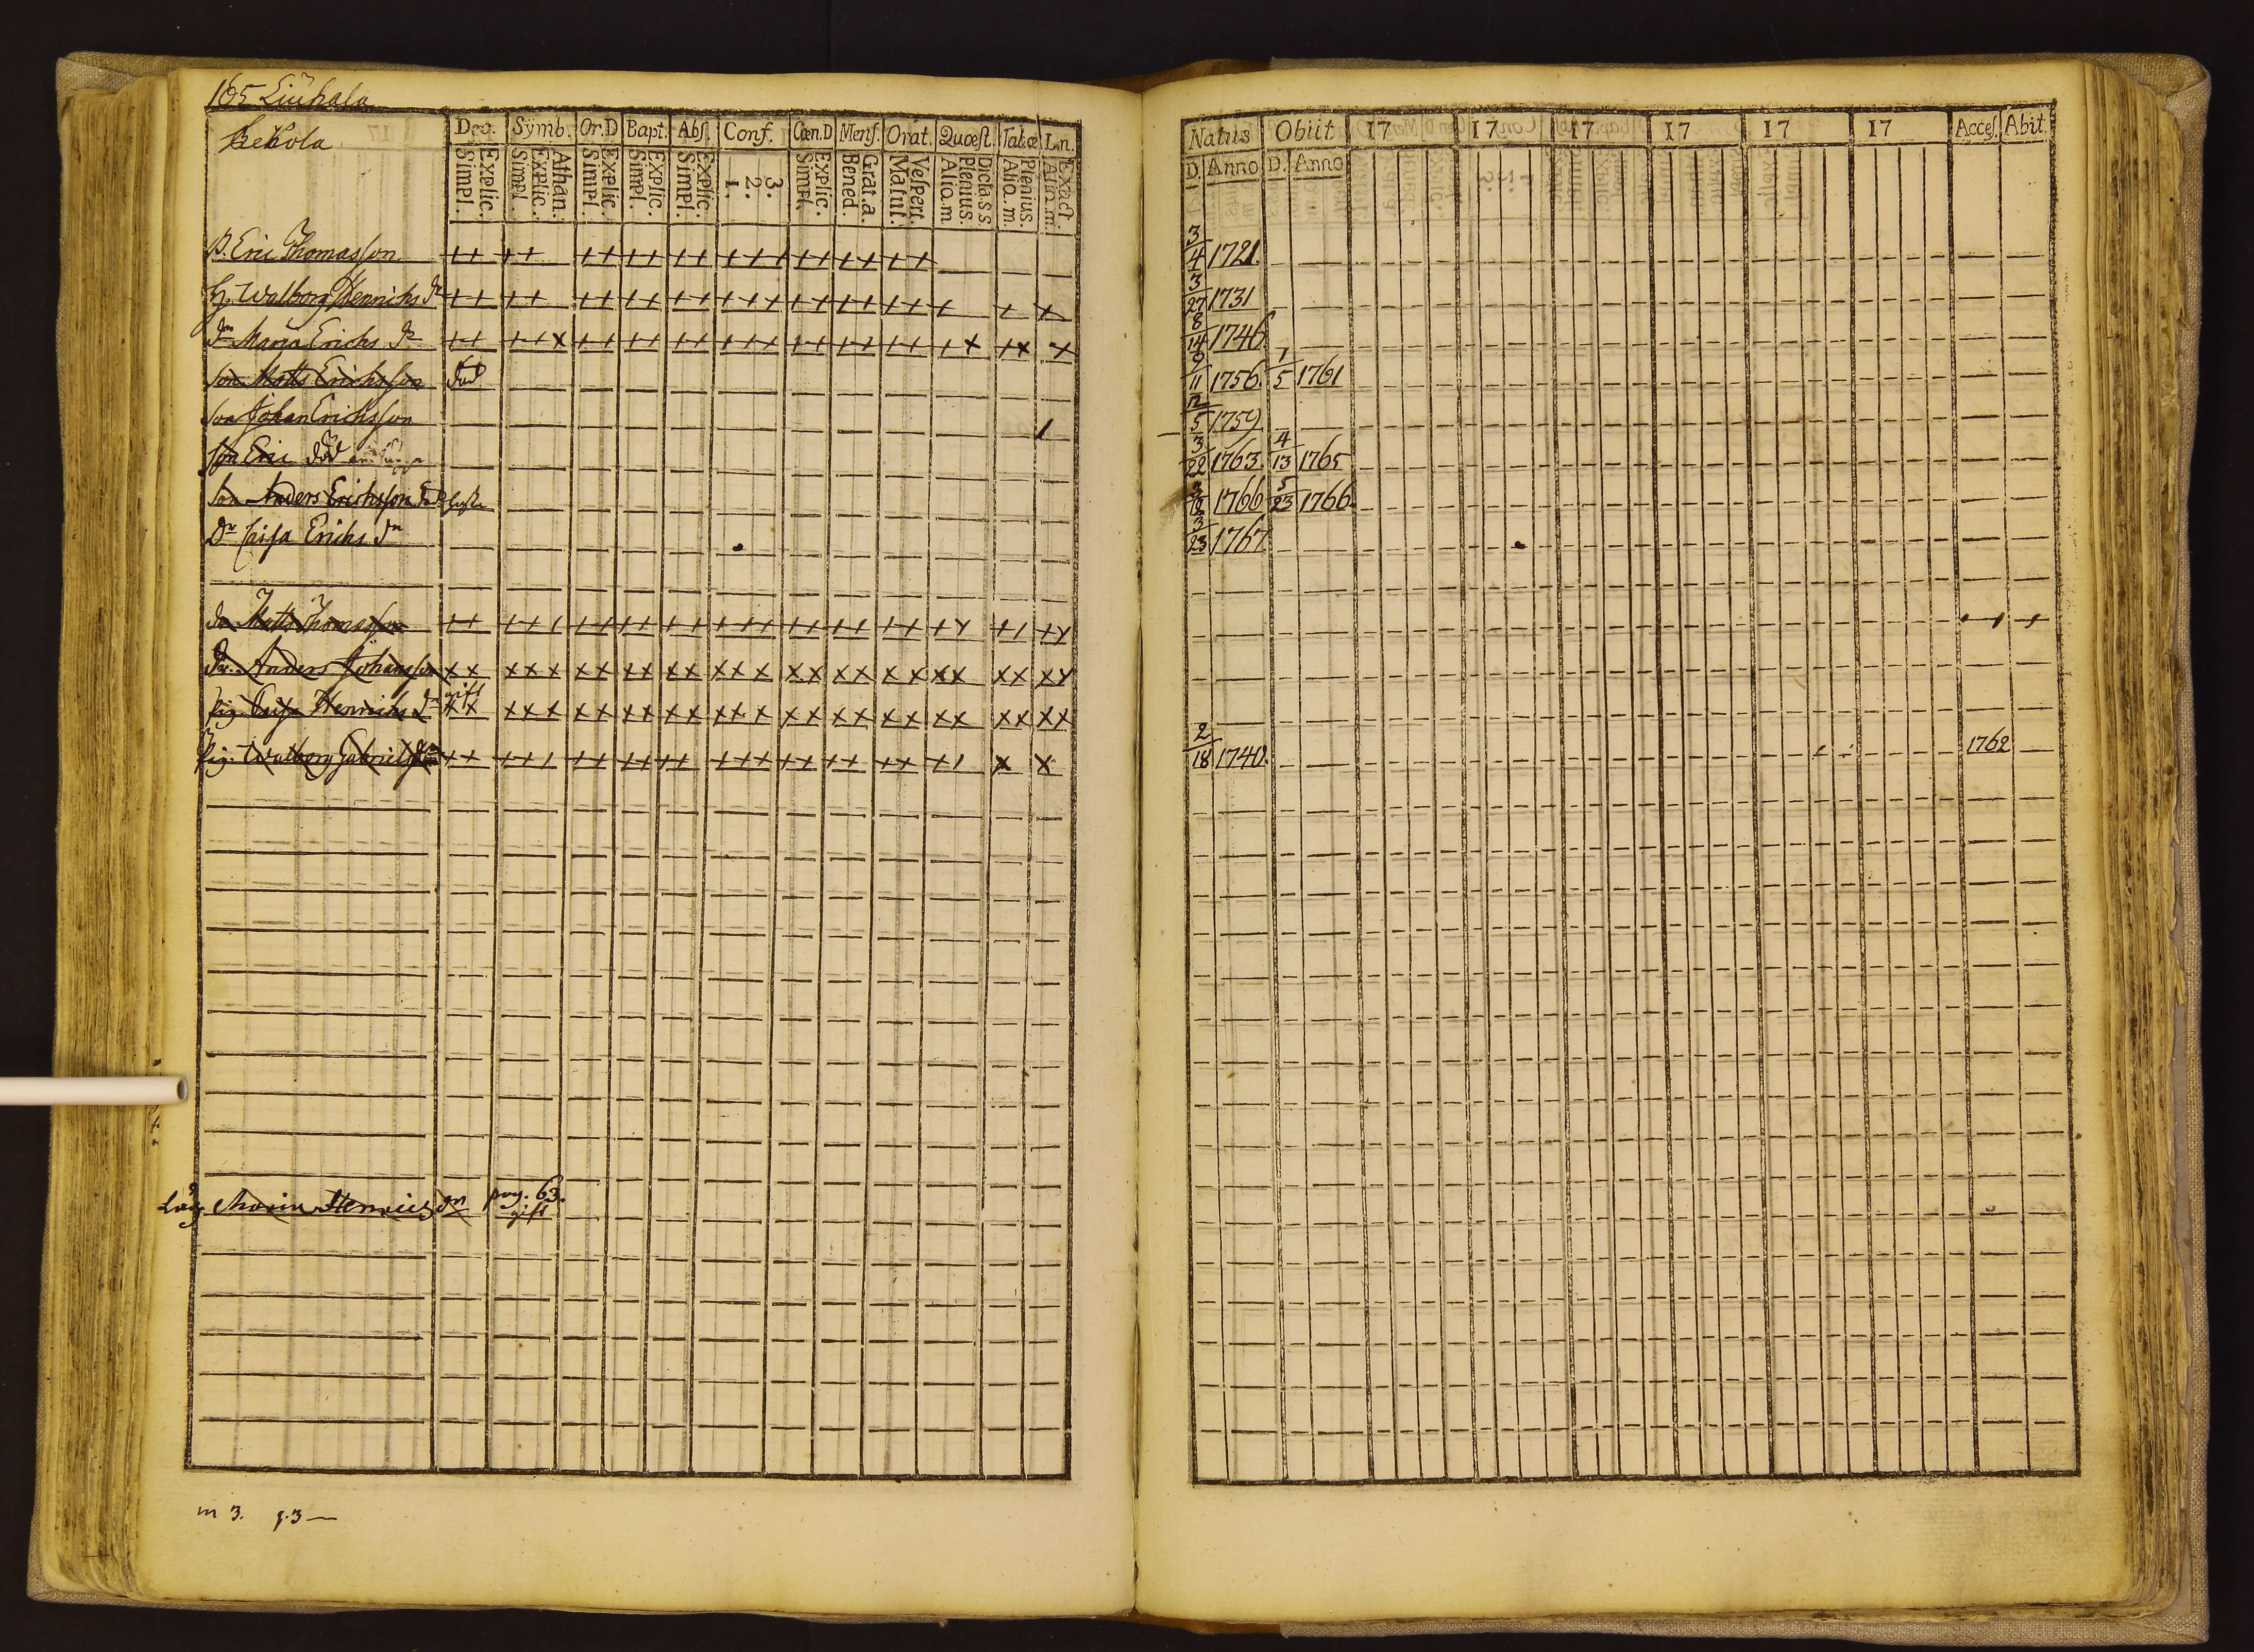 165 Liuhala
Kekola
Dec. Symb. Or.D Bapt. Abs. Conf. Cœn.D Mens. Orat. Quæst. Tabæ L.n.
Simpl. Explic. Simpl. Explic. Athan. Simpl. Explic. Simpl. Explic. Simpl. Explic. 1. 2. 3. Simpl. Explic. Bened. Grat.a. Matut. Vespert. Alio.m Plenius. Dicta.s s Alio.m. Plenius. Alio.m. Exact.
B. Eric Thomasson
H. Walborg Henrichs dr
dr Maria Erichs dr
son Matts Erichsson död
son Johan Erichsson
son Eric död
son Anders Erichsson
Dr Caisa Erichs dr
dr Matts Thomasson
Dr. Anders Johansson
pig. Caisa Henrichs dr gift
Pig. Walborg Gabriels dr
Maria Henrics dr pag. 63.
gift
m 3. q. 3 —
Natus Obiit 17 17 17 17 17 17 Acces. Abit.
D. Anno D. Anno
3/4 1721.
3/27 1731
8/14 1746
9/11 1756. 1/5 1761
12/5 1759.
3/22 1763. 4/13 1765
1766 5/23 1766.
3/23 1767
2/18 1740. 1762